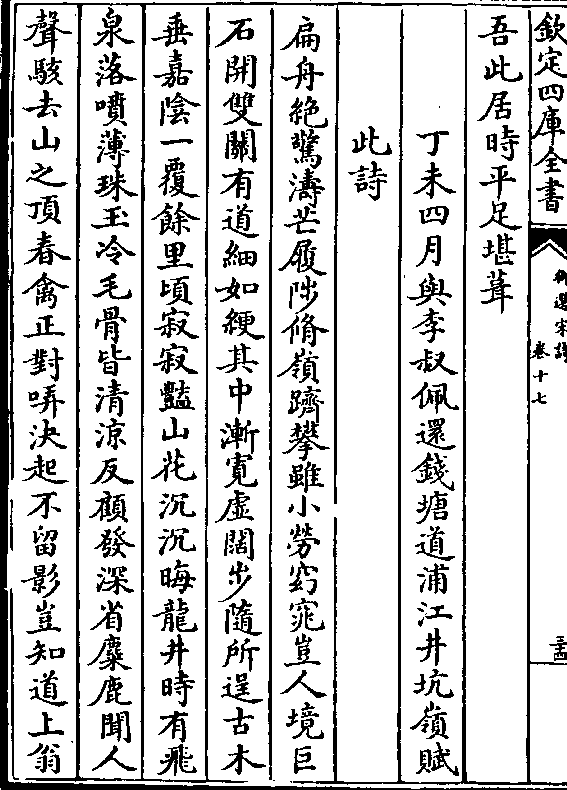 欽定四庫全書
御選宋詩
卷十七
吾此居時平足堪葺
丁未四月與李叔佩還錢塘道浦江井坑嶺賦
此詩
扁舟絶驚濤芒屨陟脩嶺躋攀雖小勞窈窕豈人境巨
石開雙闗有道細如綆其中漸寛虛闊步隨所逞古木
垂嘉陰一覆餘里頃寂寂豔山花沉沉晦龍井時有飛
泉落噴薄珠玉冷毛骨皆清凉反顧發深省麋鹿聞人
聲駭去山之頂春禽正對哢決起不留影豈知道上翁